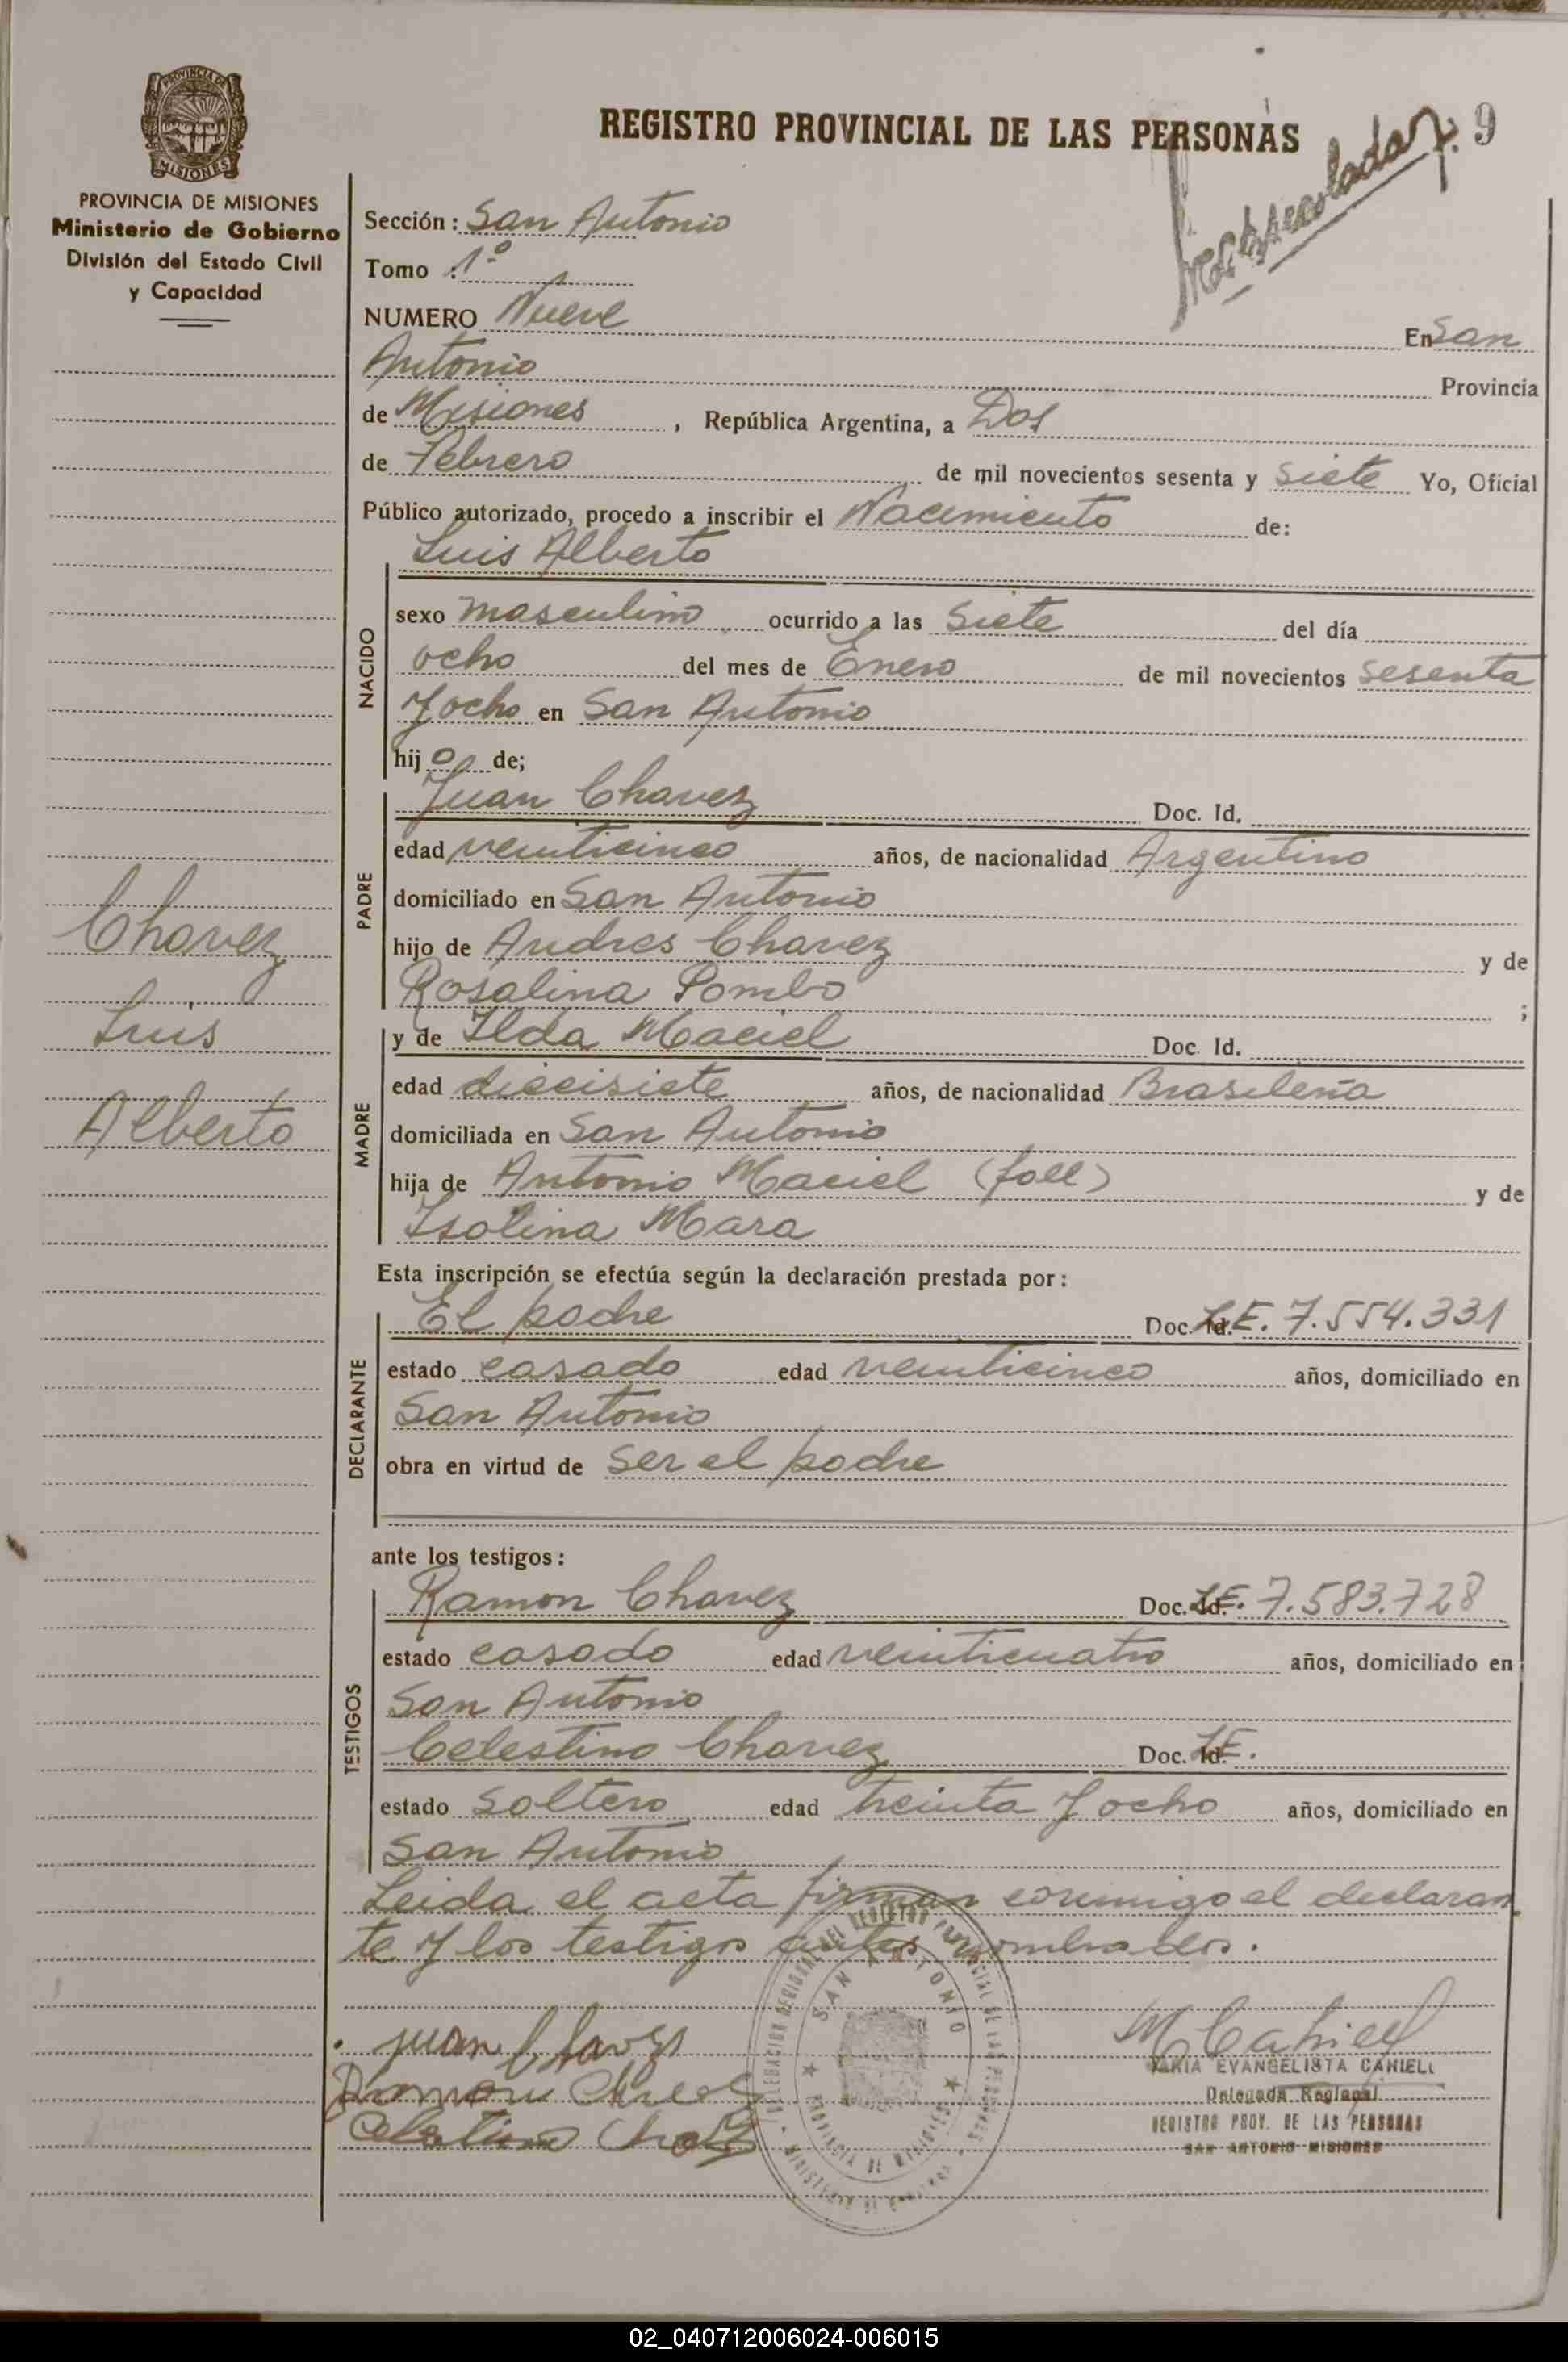 PROVINCIA DE
MISIONES
PROVINCIA DE MISIONES
Ministerio de Gobierno
División del Estado Civil
y Capacidad
REGISTRO PROVINCIAL DE LAS PERSONAS
9
Sección: San Antonio
Tomo 1º
NUMERO Nueve En San
Antonio Provincia
de Misiones, República Argentina, a Dos
de Febrero de mil novecientos sesenta y siete Yo, Oficial
Público autorizado, procedo a inscribir el Nacimiento de:
Luis Alberto
NACIDO
sexo masculino ocurrido a las siete del día
ocho del mes de Enero de mil novecientos sesenta
y ocho en San Antonio
hijo de;
PADRE
Juan Chavez Doc. Id.
edad veinticinco años, de nacionalidad Argentino
domiciliado en San Antonio
hijo de Andres Chavez y de
Rosalina Pombo ;
MADRE
y de Ilda Maciel Doc. Id.
edad diecisiete años, de nacionalidad Brasileña
domiciliada en San Antonio
hija de Antonio Maciel (fall) y de
Isolina Mara
Chavez
Luis
Alberto
Esta inscripción se efectúa según la declaración prestada por:
DECLARANTE
El padre Doc. Id. L.E. 7.554.331
estado casado edad veinticinco años, domiciliado en
San Antonio
obra en virtud de ser el padre
ante los testigos:
TESTIGOS
Ramon Chavez Doc. Id. L.E. 7.583.728
estado casado edad veinticuatro años, domiciliado en
San Antonio
Celestino Chavez Doc. Id. L.E.
estado soltero edad treinta y ocho años, domiciliado en
San Antonio
Leida el acta firman conmigo el declaran
te y los testigos antes nombrados.
Juan Chavez
Ramon Chavez
Celestino Chavez
DELEGACION REGIONAL DEL REGISTRO PROVINCIAL DE LAS PERSONAS
SAN ANTONIO
PROVINCIA DE MISIONES
MINISTERIO DE GOBIERNO
M Cahiell
MARIA EVANGELISTA CAHIELL
Delegada Regional
REGISTRO PROV. DE LAS PERSONAS
SAN ANTONIO MISIONES
02_040712006024-006015